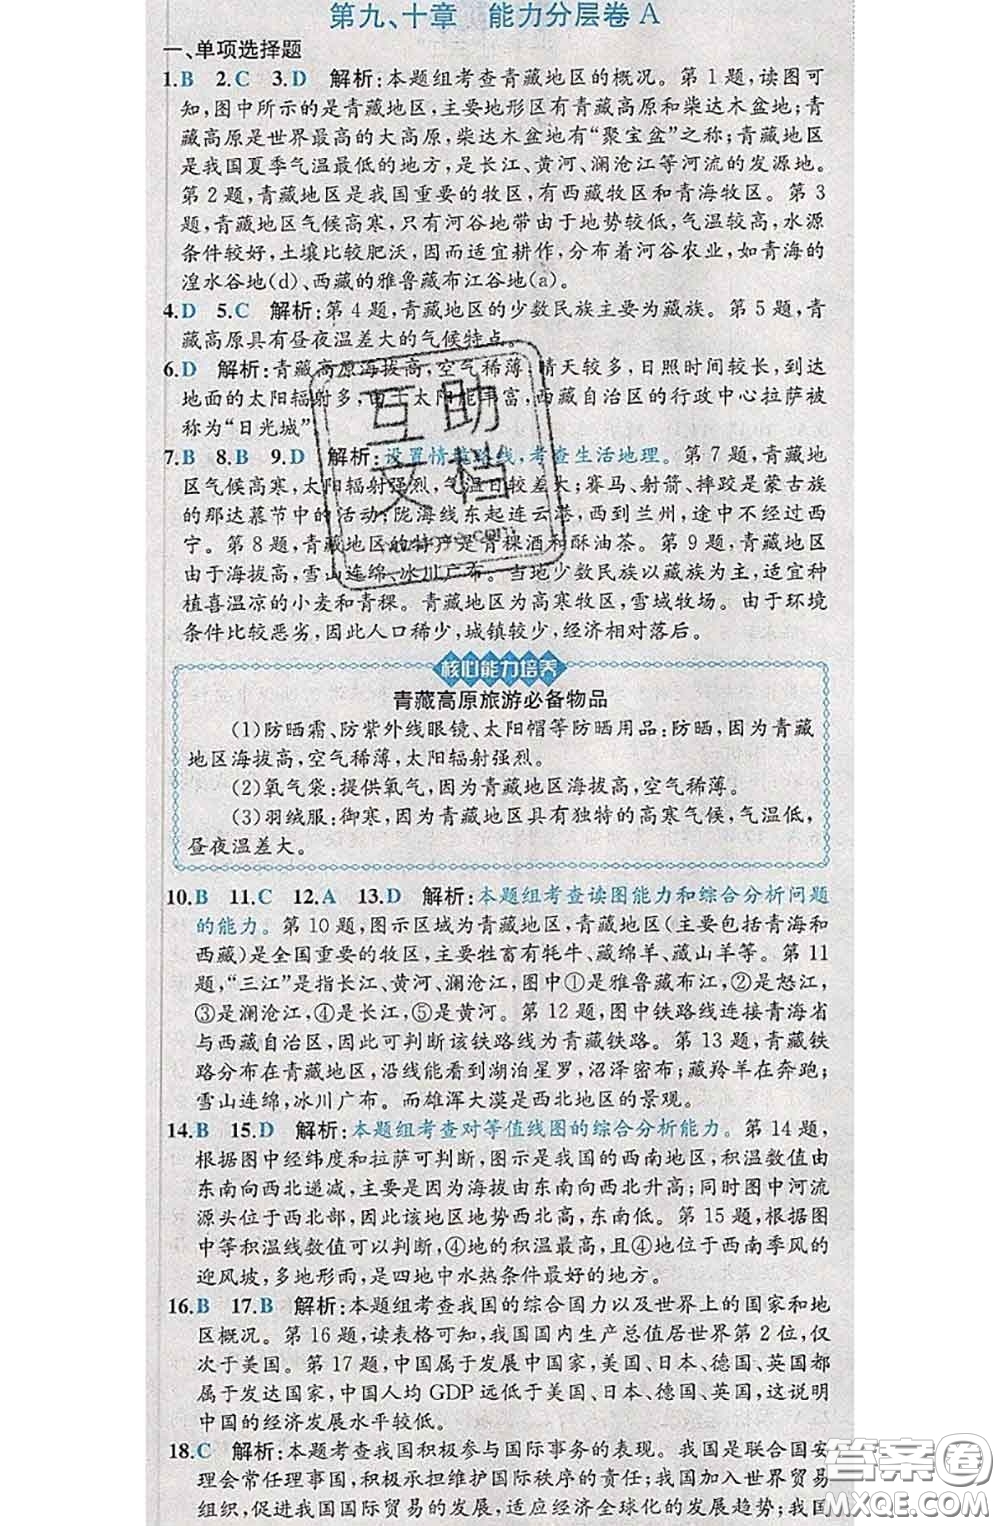 第九、十章 能力分层卷 A
一、单项选择题
1.B 2.C 3.D 解析:本题组考查青藏地区的概况。第1题,读图可
知,图中所示的是青藏地区,主要地形区有青藏高原和柴达木盆地;青
藏高原是世界最高的大高原,柴达木盆地有“聚宝盆”之称;青藏地区
是我国夏季气温最低的地方,是长江、黄河、澜沧江等河流的发源地。
第2题,青藏地区是我国重要的牧区,有西藏牧区和青海牧区。第3
题,青藏地区气候高寒,只有河谷地带由于地势较低,气温较高,水源
条件较好,土壤比较肥沃,因而适宜耕作,分布着河谷农业,如青海的
湟水谷地(d)、西藏的雅鲁藏布江谷地(a)。
4.D 5.C 解析:第4题,青藏地区的少数民族主要为藏族。第5题,青
藏高原具有昼夜温差大的气候特点。
6.D 解析:青藏高原海拔高,空气稀薄,晴天较多,日照时间较长,到达
地面的太阳辐射多,由于太阳能丰富,西藏自治区的行政中心拉萨被
称为“日光城”
7.B 8.B 9.D 解析:设置情境路线,考查生活地理。第7题,青藏地
区气候高寒,太阳辐射强烈,气温日较差大;赛马、射箭、摔跤是蒙古族
的那达慕节中的活动;陇海线东起连云港,西到兰州,途中不经过西
宁。第8题,青藏地区的特产是青稞酒和酥油茶。第9题,青藏地区
由于海拔高,雪山连绵、冰川广布。当地少数民族以藏族为主,适宜种
植喜温凉的小麦和青稞。青藏地区为高寒牧区,雪域牧场。由于环境
条件比较恶劣,因此人口稀少,城镇较少,经济相对落后。
核心能力培养
青藏高原旅游必备物品
(1)防晒霜、防紫外线眼镜、太阳帽等防晒用品:防晒,因为青藏
地区海拔高,空气稀薄,太阳辐射强烈。
(2)氧气袋:提供氧气,因为青藏地区海拔高,空气稀薄。
(3)羽绒服:御寒,因为青藏地区具有独特的高寒气候,气温低,
昼夜温差大。
10.B 11.C 12.A 13.D 解析:本题组考查读图能力和综合分析问题
的能力。第10题,图示区域为青藏地区,青藏地区(主要包括青海和
西藏)是全国重要的牧区,主要牲畜有牦牛、藏绵羊、藏山羊等。第11
题,“三江”是指长江、黄河、澜沧江,图中①是雅鲁藏布江,②是怒江,
③是澜沧江,④是长江,⑤是黄河。第12题,图中铁路线连接青海省
与西藏自治区,因此可判断该铁路线为青藏铁路。第13题,青藏铁
路分布在青藏地区,沿线能看到湖泊星罗,沼泽密布;藏羚羊在奔跑;
雪山连绵,冰川广布。而雄浑大漠是西北地区的景观。
14.B 15.D 解析:本题组考查对等值线图的综合分析能力。第14题,
根据图中经纬度和拉萨可判断,图示是我国的西南地区,积温数值由
东南向西北递减,主要是因为海拔由东南向西北升高;同时图中河流
源头位于西北部,因此该地区地势西北高,东南低。第15题,根据图
中等积温线数值可以判断,④地的积温最高,且④地位于西南季风的
迎风坡,多地形雨,是四地中水热条件最好的地方。
16.B 17.B 解析:本题组考查我国的综合国力以及世界上的国家和地
区概况。第16题,读表格可知,我国国内生产总值居世界第2位,仅
次于美国。第17题,中国属于发展中国家,美国、日本、德国、英国都
属于发达国家,中国人均GDP远低于美国、日本、德国、英国,这说明
中国的经济发展水平较低。
18.C 解析:本题考查我国积极参与国际事务的表现。我国是联合国安
理会常任理事国,积极承担维护国际秩序的责任;我国加入世界贸易
组织,促进我国国际贸易的发展,适应经济全球化的发展趋势;我国
互助
文档
答案圈
MXQE.COM